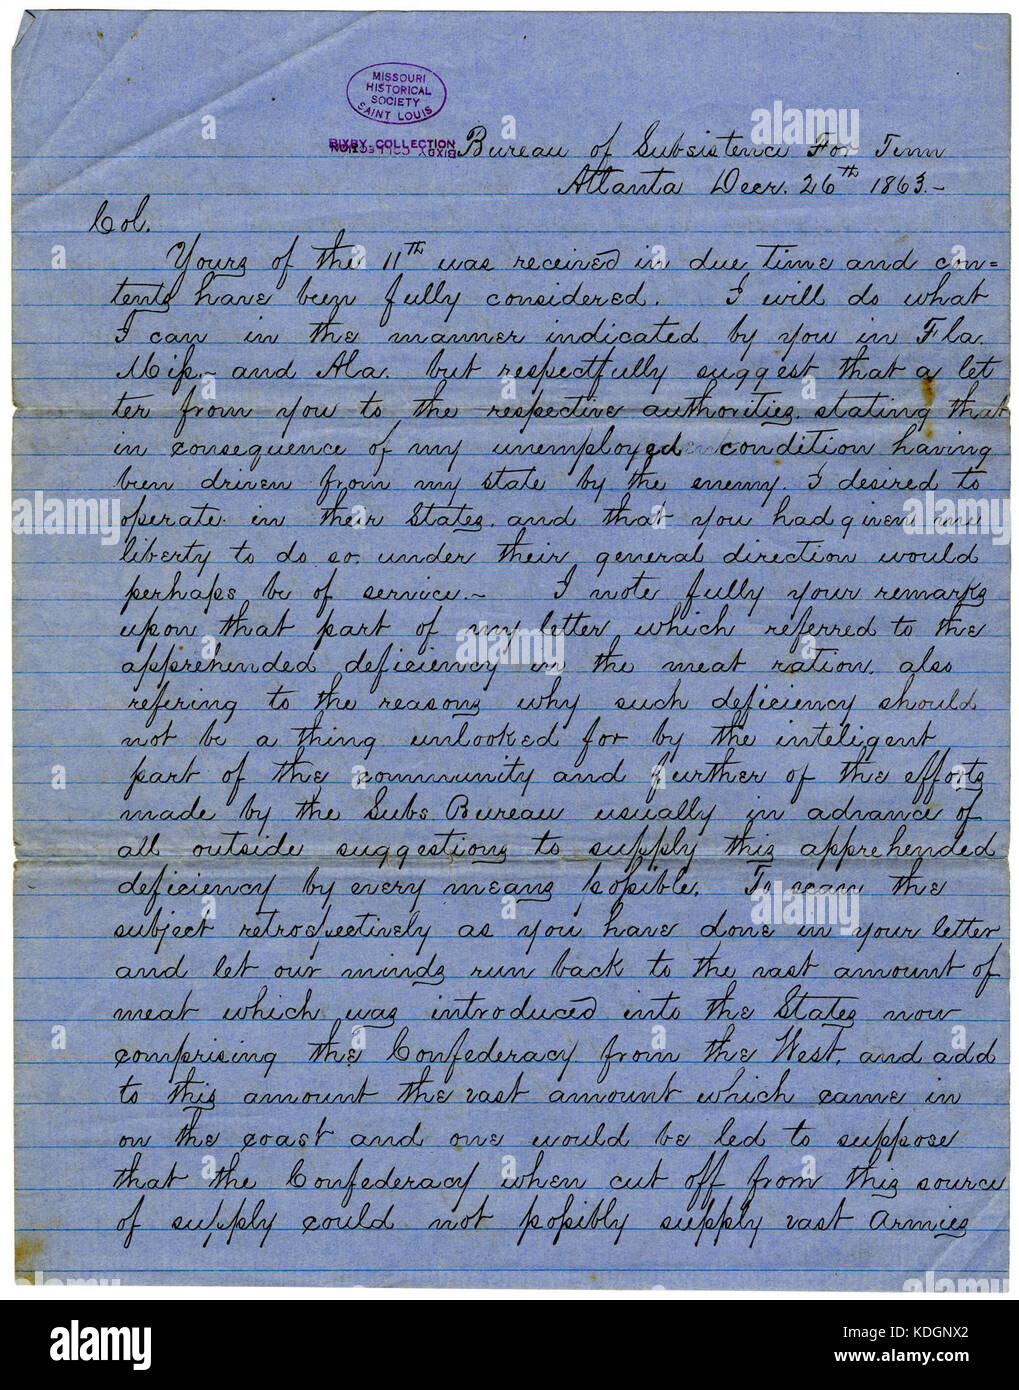 MISSOURI
HISTORICAL
SOCIETY
SAINT LOUIS
BIXBY COLLECTION
Bureau of Subsistence For Tenn
Atlanta Decr. 26th 1863.-
Col.
Yours of the 11th was received in due time and con=
tents have been fully considered. I will do what
I can in the manner indicated by you in Fla.
Miss.- and Ala. but respectfully suggest that a let
ter from you to the respective authorities, stating that
in consequence of my unemployed condition having
been driven from my state by the enemy. I desired to
operate in their States, and that you had given me
liberty to do so. under their general direction would
perhaps be of service.- I note fully your remarks
upon that part of my letter which referred to the
apprehended deficiency in the meat ration, also
refering to the reasons why such deficiency should
not be a thing unlooked for by the inteligent
part of the community and further of the efforts
made by the Subs. Bureau usually in advance of
all outside suggestions to supply this apprehended
deficiency by every means possible. To scan the
subject retrospectively as you have done in your letter
and let our minds run back to the vast amount of
meat which was introduced into the States now
comprising the Confederacy from the West, and add
to this amount the vast amount which came in
on the coast and one would be led to suppose
that the Confederacy when cut off from this source
of supply could not possibly supply vast Armies
alamy
Image ID: KDGNX2
www.alamy.com